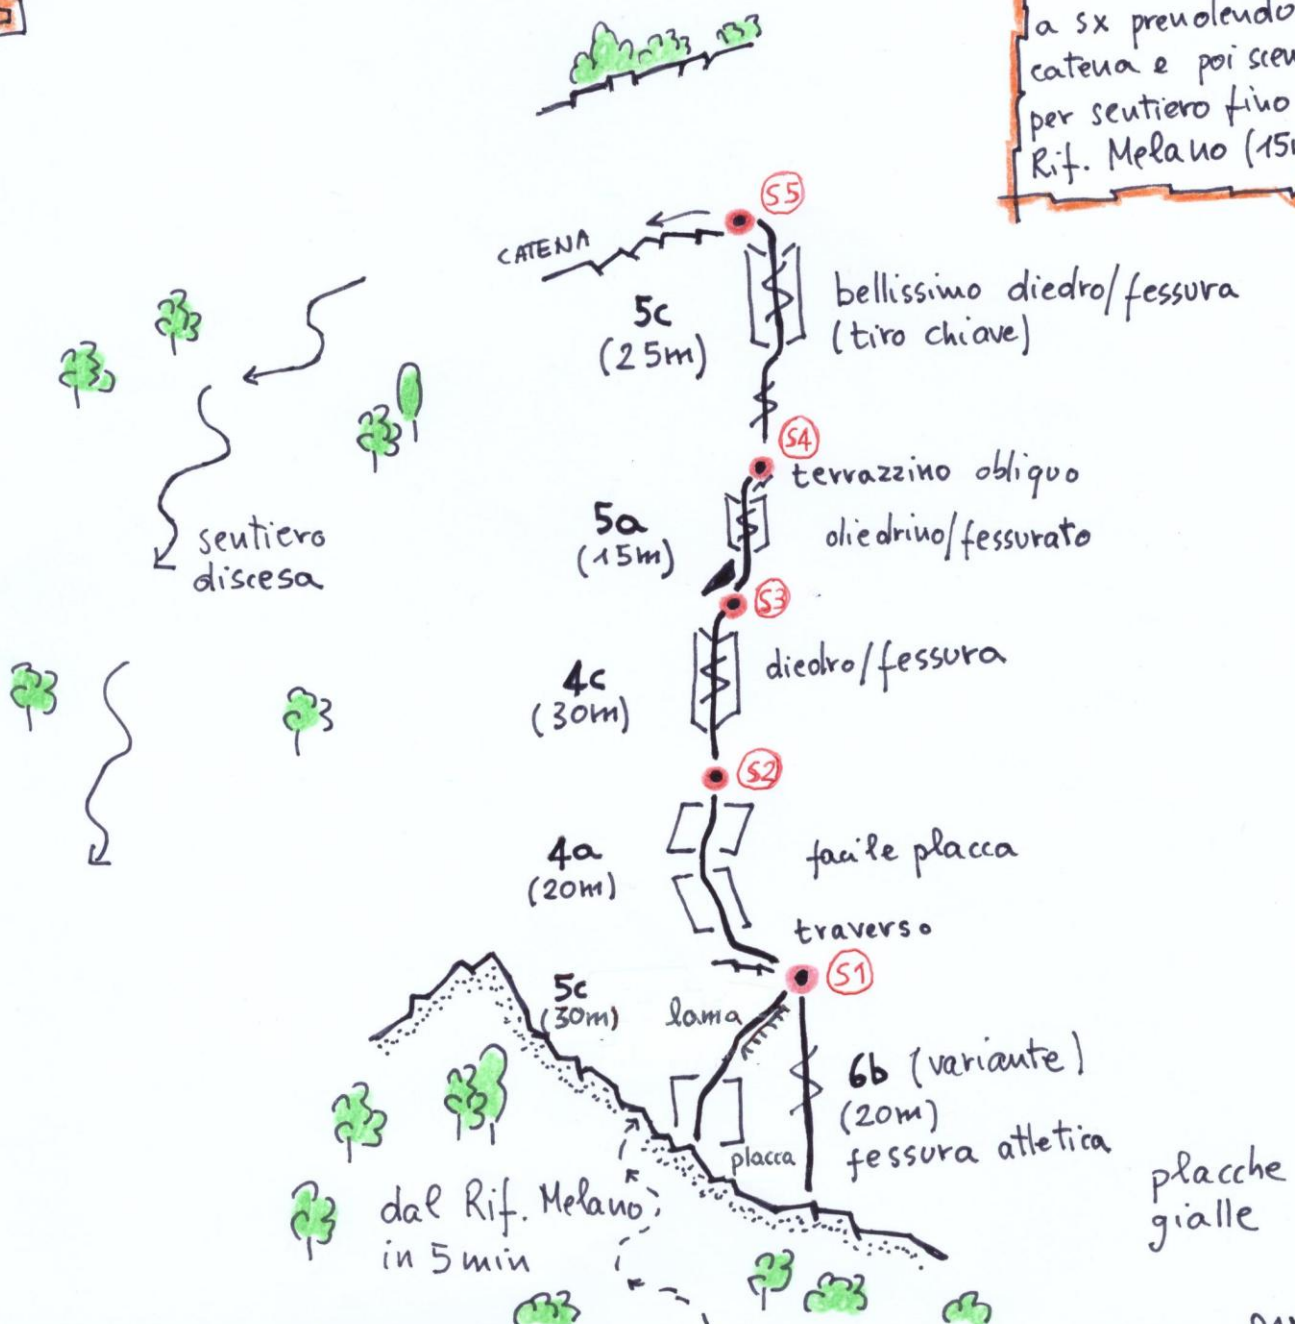 a sx prendendo
catena e poi scen
per sentiero fino
Rif. Melano (15m
S5
CATENA
5c
(25m)
bellissimo diedro/fessura
(tiro chiave)
S4
terrazzino obliquo
5a
(15m)
diedrino/fessurato
S3
sentiero
discesa
4c
(30m)
diedro/fessura
S2
4a
(20m)
facile placca
traverso
S1
5c
(30m)
lama
6b (variante)
(20m)
fessura atletica
placca
placche
gialle
dal Rif. Melano
in 5 min